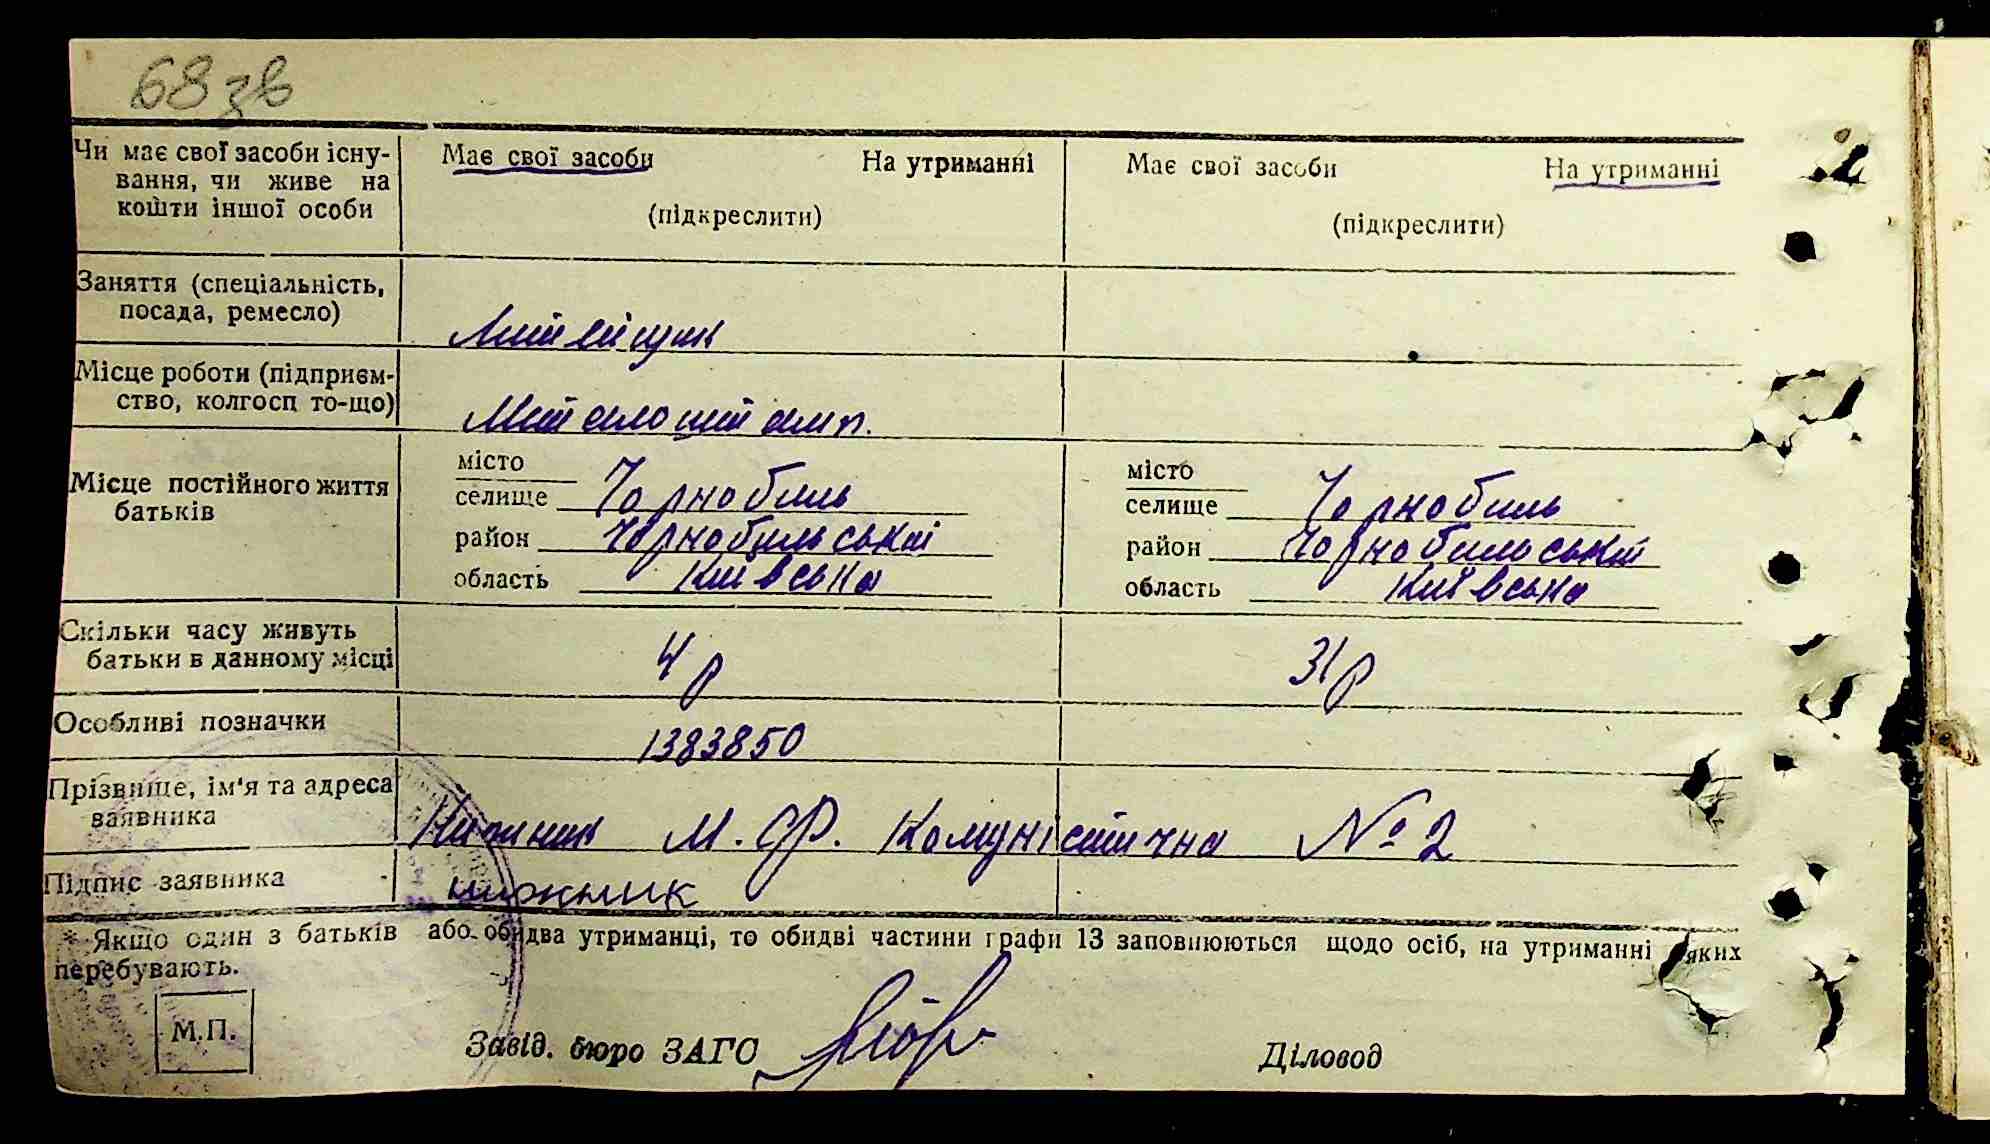 68 зв
Чи має свої засоби існу-
вання, чи живе на
кошти іншої особи
Має свої засоби На утриманні
(підкреслити)
Має свої засоби На утриманні
(підкреслити)
Заняття (спеціальність,
посада, ремесло)
Місце роботи (підприєм-
ство, колгосп то-що)
Місце постійного життя
батьків
місто
селище Чорнобиль
район Чорнобильський
область Київська
місто
селище Чорнобиль
район Чорнобильський
область Київська
Скільки часу живуть
батьки в данному місці
4 р
31 р
Особливі позначки
1383850
Прізвище, ім'я та адреса
заявника
М. Ф. Комуністична № 2
Підпис заявника
* Якщо один з батьків або обидва утриманці, то обидві частини графи 13 заповнюються щодо осіб, на утриманні яких
перебувають.
М.П.
Завід. бюро ЗАГС
Діловод